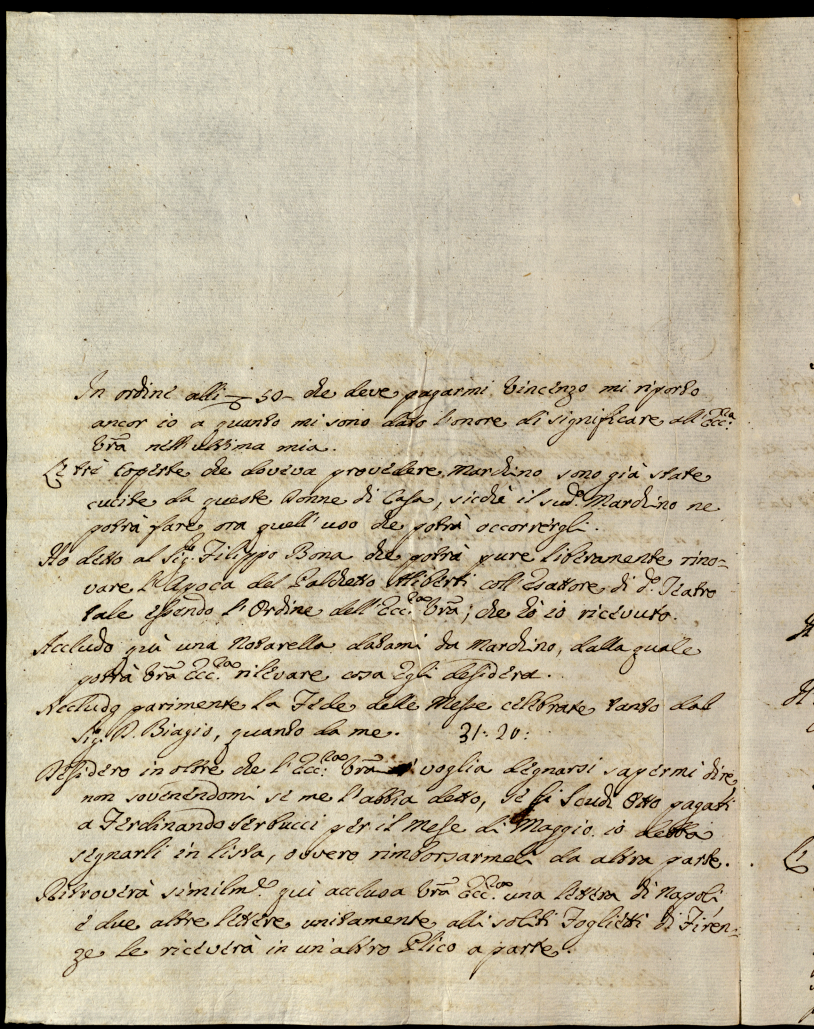 In ordine alli ▽ 50 - che deve pagarmi Vincenzo mi riporto
ancor io a quanto mi sono dato l'onore di significare all'Ecc:za
Vra nell'ultima mia.
Le trè Coperte che doveva provedere Marchino sono già state
cucite da queste Donne di Casa, sicchè il sud.o Marchino ne
potrà fare ora quell'uso che potrà occorrergli.
Ho detto al Sig.r Filippo Bona che potrà pure liberamente rino-
vare l'Apoca del Palchetto Aliberti coll'Esattore di d.o Teatro
tale essendo l'Ordine dell'Ecc:za Vra; che hò io ricevuto.
Accludo quà una Notarella datami da Marchino, dalla quale
potrà Vra Ecc:za rilevare cosa Egli desidera.
Accludo parimente la Fede delle Messe celebrate tanto dal
Sig.r D. Biagio, quanto da me. 31: 20:
Desidero in oltre che l'Ecc:za Vra voglia degnarsi sapermi dire
non sovenendomi se me l'abbia detto, se li Scudi Otto pagati
a Ferdinando Serbucci per il Mese di Maggio io debba
segnarli in lista, ovvero rimborsarmeli da altra parte.
Ritroverà similm.te quì acclusa Vra Ecc:za una lettera di Napoli
e due altre lettere unitamente alli soliti Foglietti di Firen-
ze le riceverà in un'altro Plico a parte.